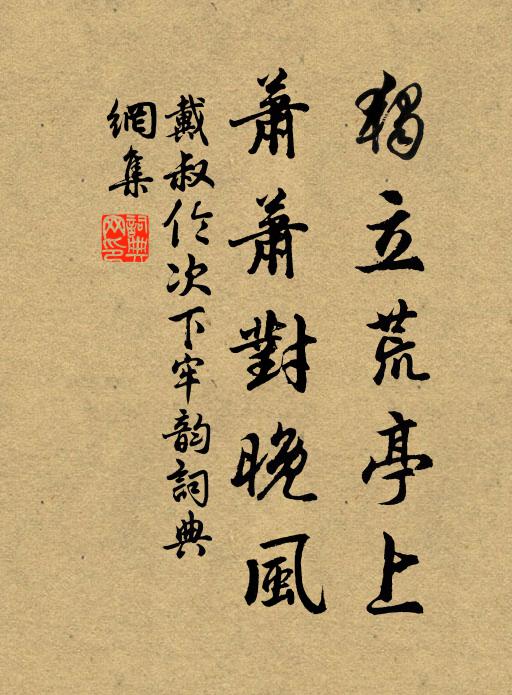 獨立荒亭上
蕭蕭對晚風
戴叔伦次下牢韵詞典
網集
詞典
网印